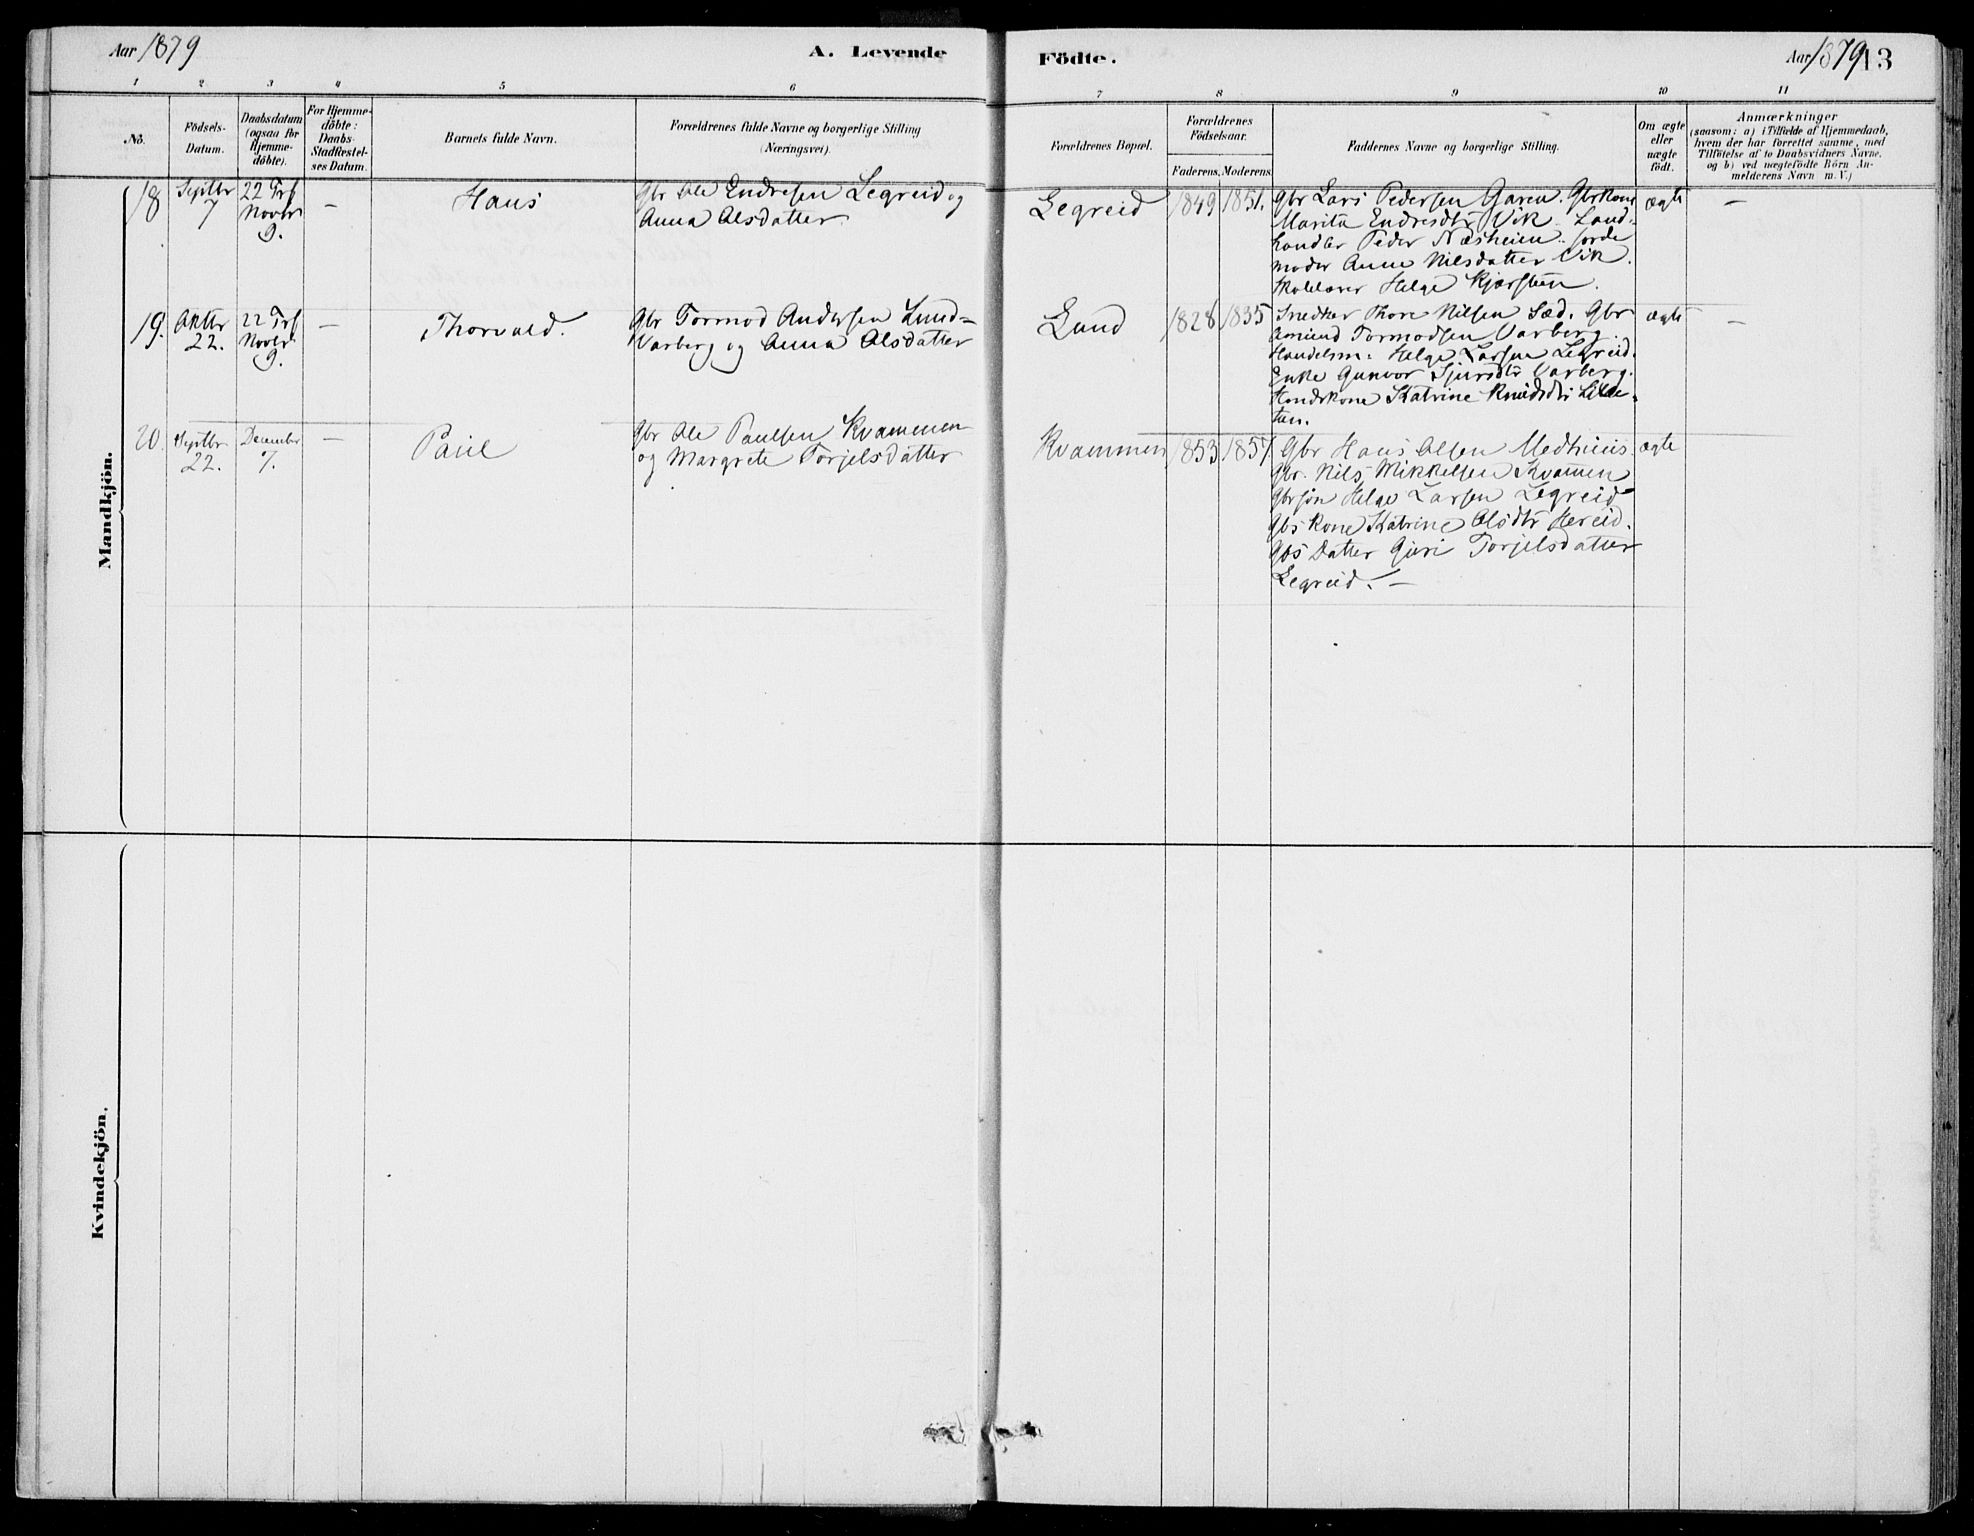 Aar 1879
A. Levende
Födte.
Aar 1879
13
1 2 3 4 5 6 7 8 9 10 11
No.
Födsels-
Datum.
Daabsdatum
(ogsaa for
Hjemme-
döbte).
For Hjemme-
döbte:
Daabs-
Stadfæstel-
ses Datum.
Barnets fulde Navn.
Forældrenes fulde Navne og borgerlige Stilling
(Næringsvei).
Forældrenes Bopæl.
Forældrenes
Födselsaar.
Faderens. Moderens.
Faddernes Navne og borgerlige Stilling.
Om ægte
eller
uægte
födt.
Anmærkninger
(saasom: a) i Tilfælde af Hjemmedaab,
hvem der har forrettet samme, med
Tilföielse af to Daabsvidners Navne,
og b) ved uægtefödte Börn An-
melderens Navn m. V.)
Mandkjön.
18
Septbr
7
22 Trf
Novbr
9.
—
Hans
Gbr Ole Endresen Legreid og
Anna Olsdatter
Legreid
1849
1851.
Gbr Lars Pedersen Garen. Gbrkone
Marita Endresdtr Vik. Land-
handler Peder Næsheim. Jorde
moder Anna Nilsdatter Vik.
Skolelærer Helge Kjærsteen.
ægte
—
19.
Oktbr
22.
22 Trf
Novbr
9.
—
Thorvald.
Gbr Tormod Andersen Lund-
Varberg og Anna Olsdatter
Lund
1828
1835
Snedker Thore Nilsen Sæd. Gbr
Amund Tormodsen Varberg.
Handelsm. Helge Larsen Legreid.
Enke Gunvor Sjursdtr Varberg.
Huuskone Katrine Knudsdtr
ægte
—
20.
Septbr
22.
December
7.
—
Paul
Gbr Ole Paulsen Kvammen
og Margrete Torjelsdatter
Kvammen
1853
1857
Gbr Hans Olsen Medhuus
Gbr. Nils Mikkelsen Kvammen
Gbrsøn Helge Larsen Legreid
Gbs Kone Katrine Olsdtr Hereid.
Gbs Datter Guri Torjelsdatter
Legreid. —
ægte
Kvindekjön.